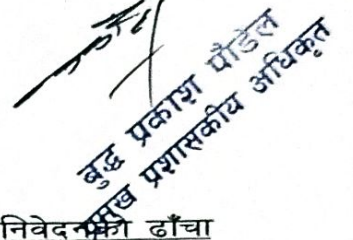 बुद्ध प्रकाश पौडेल
प्रमुख प्रशासकीय अधिकृत
निवेदनको ढाँचा